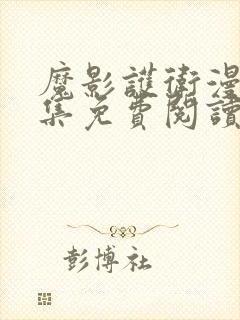 魔影護衛漫
集免費閱讀
彭博社